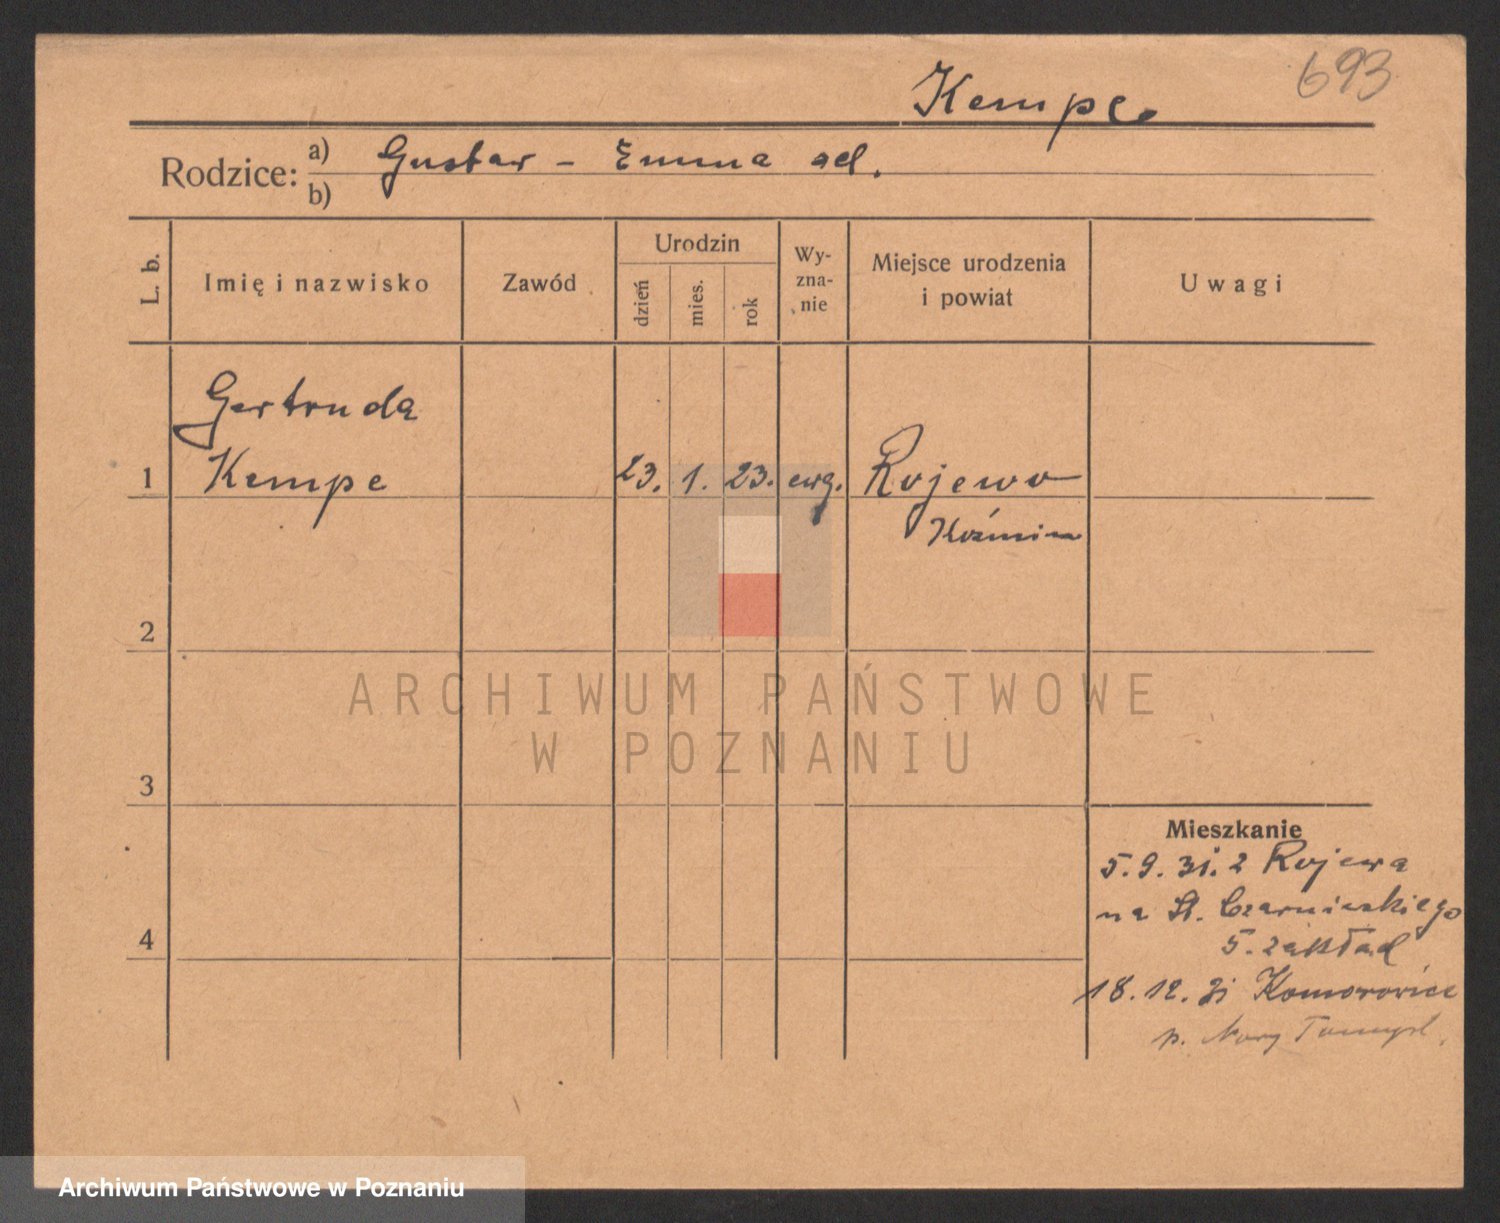 693
Kempe
Rodzice: a) Gustav - Emma
b)
L. b.
Imię i nazwisko
Zawód
Urodzin
dzień
mies.
rok
Wy-
zna-
nie
Miejsce urodzenia
i powiat
Uwagi
Gertruda
1 Kempe 23. 1. 23. ewg. Rojewo
Koźmin
2
ARCHIWUM PAŃSTWOWE
W POZNANIU
3
Mieszkanie
5. 9. 31. z Rojewa
na St. Czarnieckiego
5. zakład
4
18. 12. 31 Komorowice
p. Nowy Tomyśl.
Archiwum Państwowe w Poznaniu